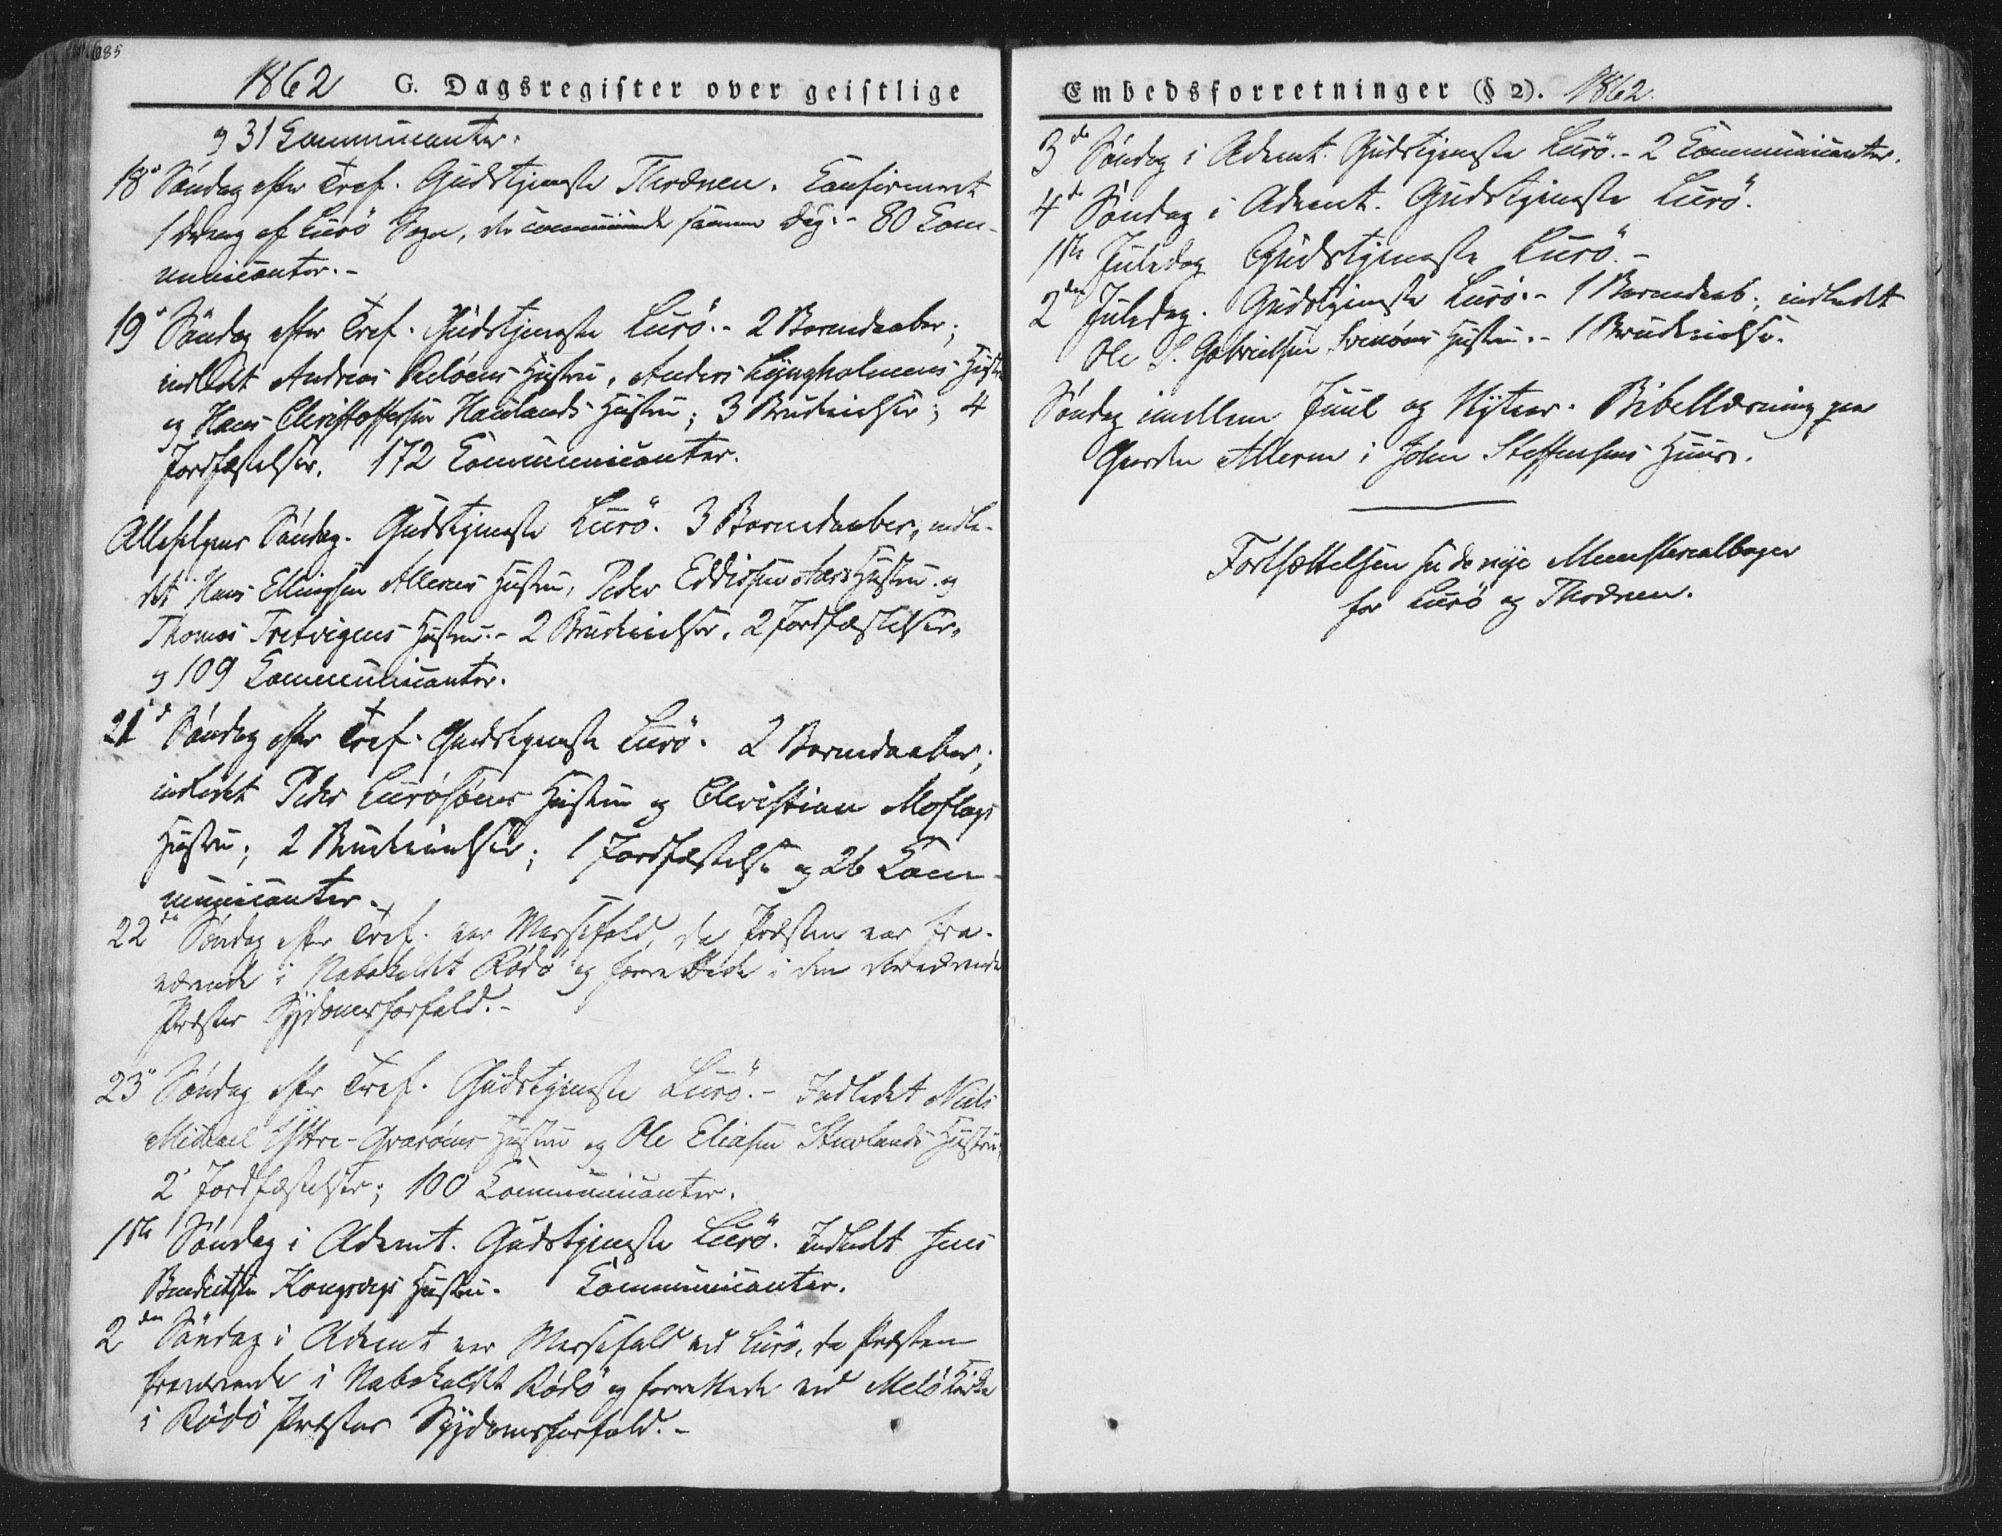 1862 G. Dagsregister over geistlige
og 31 Communicanter.
18de Søndag efter Tref. Gudstjeneste Thrænen. Confirmeret
1 Dreng af Lurö Sogn, der communicerede samme Dag. - 80 Com-
municanter. -
19de Søndag efter Tref. Gudstjeneste Lurö. - 2 Barnedaaber;
indledet Andreas Hustru, Anders Lyngholmens Hustru
og Hans Christophersen Haulands Hustru; 3 Brudevielser; 4
Jordfæstelser. 172 Communicanter.
Allehelgens Søndag. Gudstjeneste Lurö. 3 Barnedaaber, indle-
det Hans Ellingsen Alleruns Hustru, Peder Eddissen Aas Hustru og
Thomas Tretvigens Hustru. - 2 Brudevielser, 2 Jordfæstelser,
og 109 Communicanter.
21de Søndag efter Tref. Gudstjeneste Lurö. 2 Barnedaaber;
indledet Peder Hustru og Christian Moflags
Hustru; 2 Brudevielser; 1 Jordfæstelse og 26 Com-
municanter. -
22de Søndag efter Tref. var Messefald, da Præsten var fra-
værende i Nabokaldet Rödö og forrettede i den derværende
Præstes Sygdomsforfald. -
23de Søndag efter Tref. Gudstjeneste Lurö. - Indledet Niels
Michael Yttre-Qvarøens Hustru og Ole Eliasen Stuvlands Hustru;
2 Jordfæstelser; 100 Communicanter.
1ste Søndag i Advent. Gudstjeneste Lurö. Indledet Jens
Benedictsen Kongsvigs Hustru. Communicanter.
2den Søndag i Advent var Messefald ved Lurö, da Præsten
fraværende i Nabokaldet Rödö og forrettede ved Melö Kirke
i Rödö Præstes Sygdomsforfald. -
Embedsforretninger (§ 2). 1862.
3de Søndag i Advent. Gudstjeneste Lurö. - 2 Communicanter.
4de Søndag i Advent. Gudstjeneste Lurö.
1ste Juledag Gudstjeneste Lurö. -
2den Juledag. Gudstjeneste Lurö. - 1 Barnedaab; indledet
Ole S. Gabrielsen Hustru. - 1 Brudevielse.
Søndag imellem Juul og Nytaar. Bibellæsning paa
Gaarden Alleren i John Steffensens Huus.
Fortsættelsen see de nye Ministerialbøger
for Lurö og Thrænen.